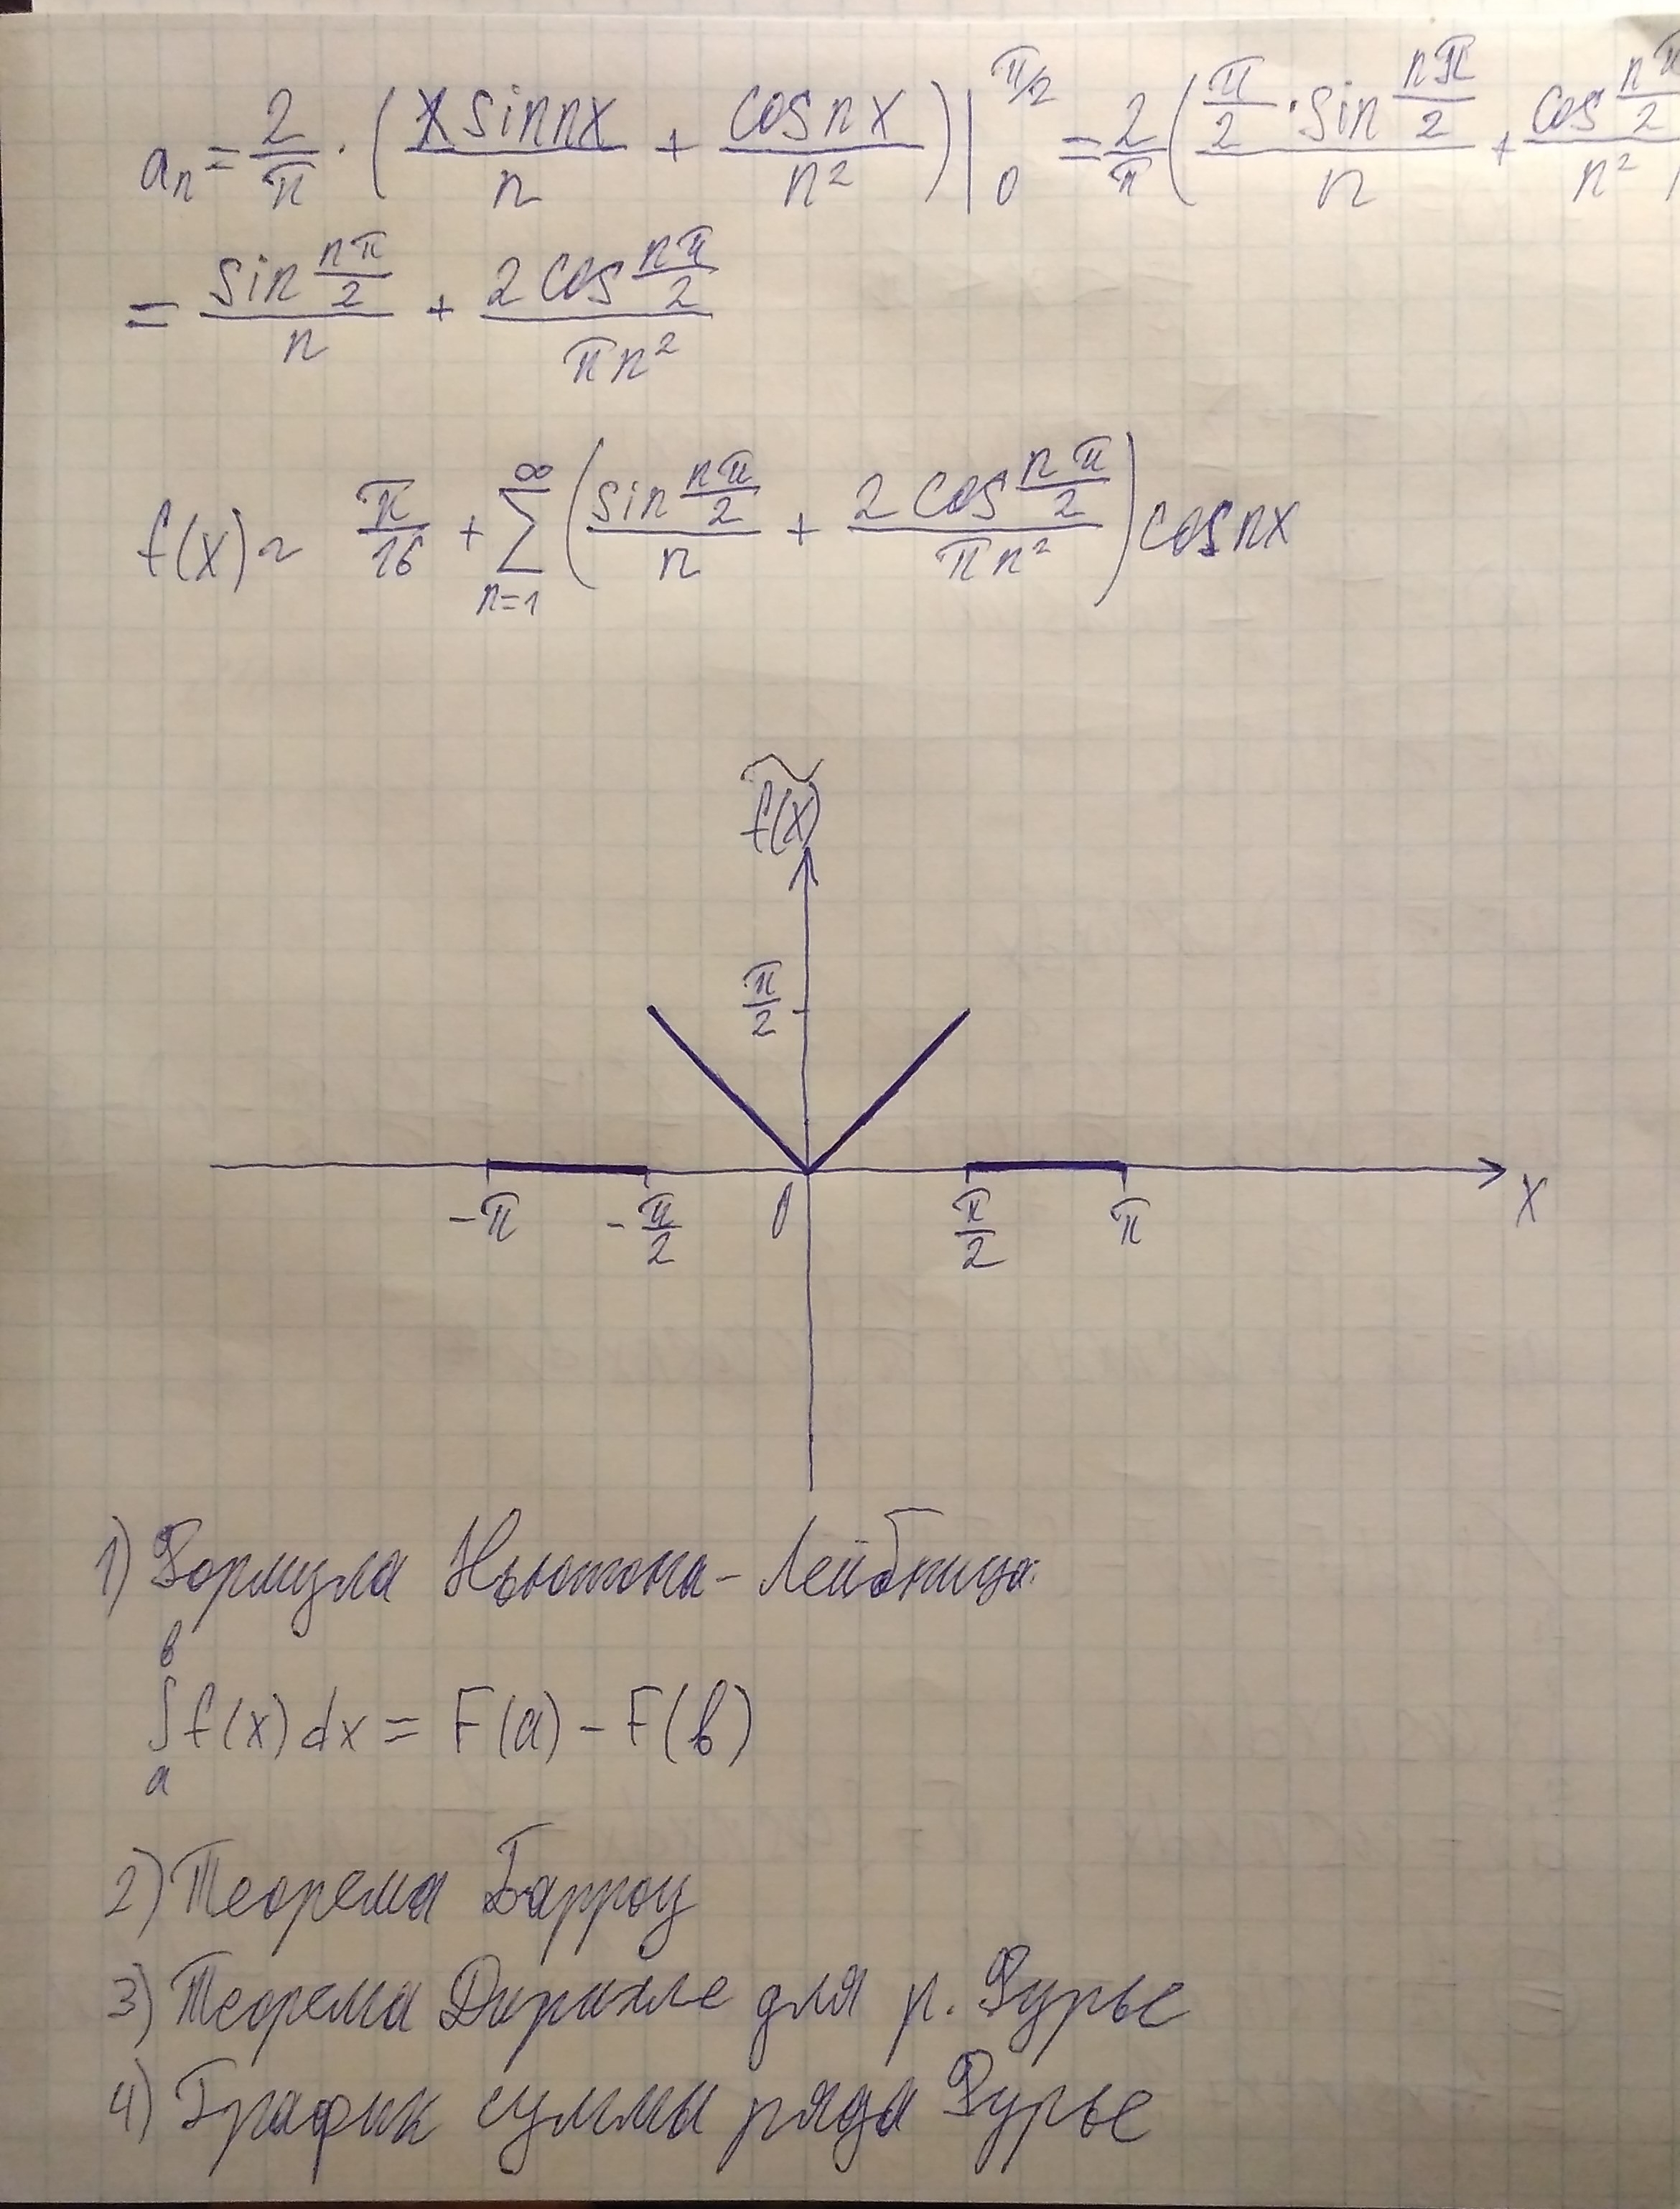 aₙ = 2/π · (x sin nx / n + cos nx / n²) |₀^(π/2) = 2/π (π/2 · sin nπ/2 / n + cos nπ/2 / n²)
= sin nπ/2 / n + 2 cos nπ/2 / πn²
f(x) ~ π/16 + ∑_(n=1)^∞ (sin nπ/2 / n + 2 cos nπ/2 / πn²) cos nx
f(x)
π/2
-π -π/2 0 π/2 π x
1) Формула Ньютона-Лейбница:
∫ₐᵇ f(x) dx = F(a) - F(b)
2) Теорема Барроу
3) Теорема Дирихле для р. Фурье
4) График суммы ряда Фурье